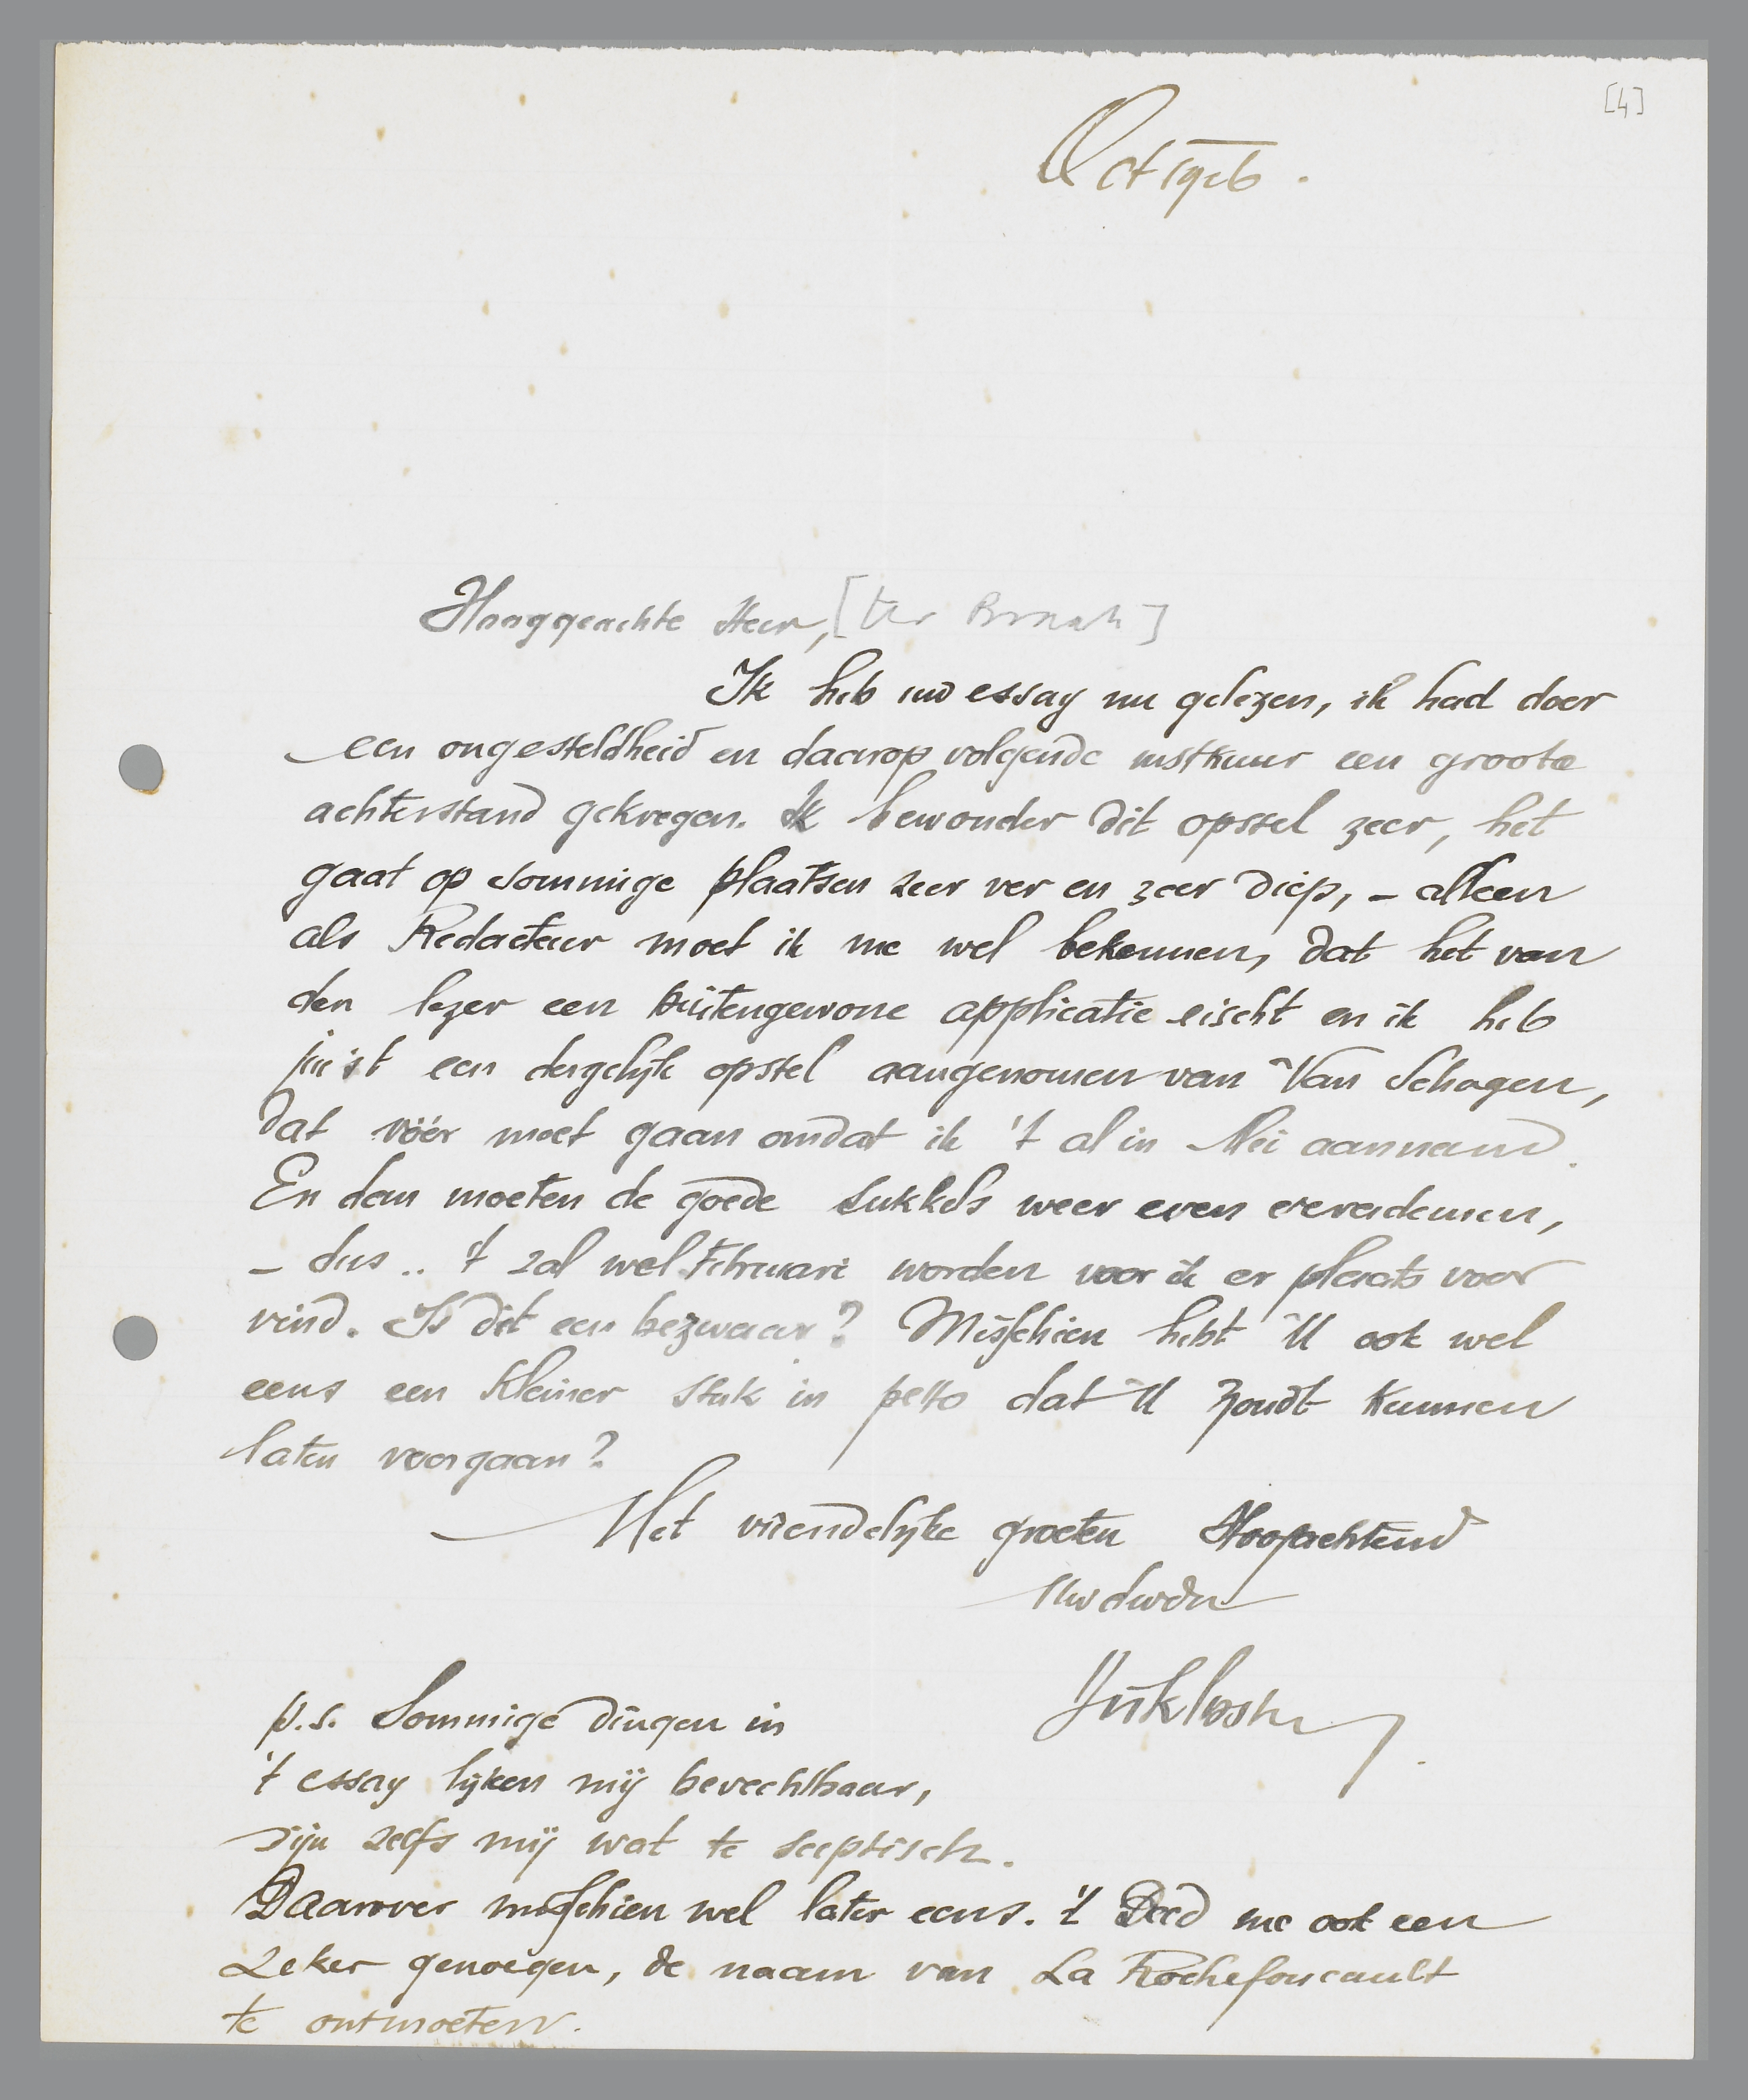 [4]
Oct 1926.
Hooggeachte Heer, [ter Braak]
Ik heb uw essay nu gelezen, ik had door
een ongesteldheid en daarop volgende rustkuur een groote
achterstand gekregen. Ik bewonder dit opstel zeer, het
gaat op sommige plaatsen zeer ver en zeer diep, – alleen
als Redacteur moet ik me wel bekennen, dat het van
den lezer een buitengewone applicatie eischt en ik heb
juist een dergelijk opstel aangenomen van Van Schagen,
dat vóór moet gaan omdat ik 't al in Mei aannam.
En dan moeten de goede sukkels weer even verademen,
– dus .. 't zal wel Februari worden voor ik er plaats voor
vind. Is dit een bezwaar? Misschien hebt U ook wel
eens een kleiner stuk in petto dat U zoudt kunnen
laten voorgaan?
Met vriendelijke groeten Hoogachtend
Uw dwdr
p.s. Sommige dingen in
't essay lijken mij bevechtbaar,
zijn zelfs mij wat te sceptisch.
Daarover misschien wel later eens. 't Deed me ook een
zeker genoegen, de naam van La Rochefoucault
te ontmoeten.